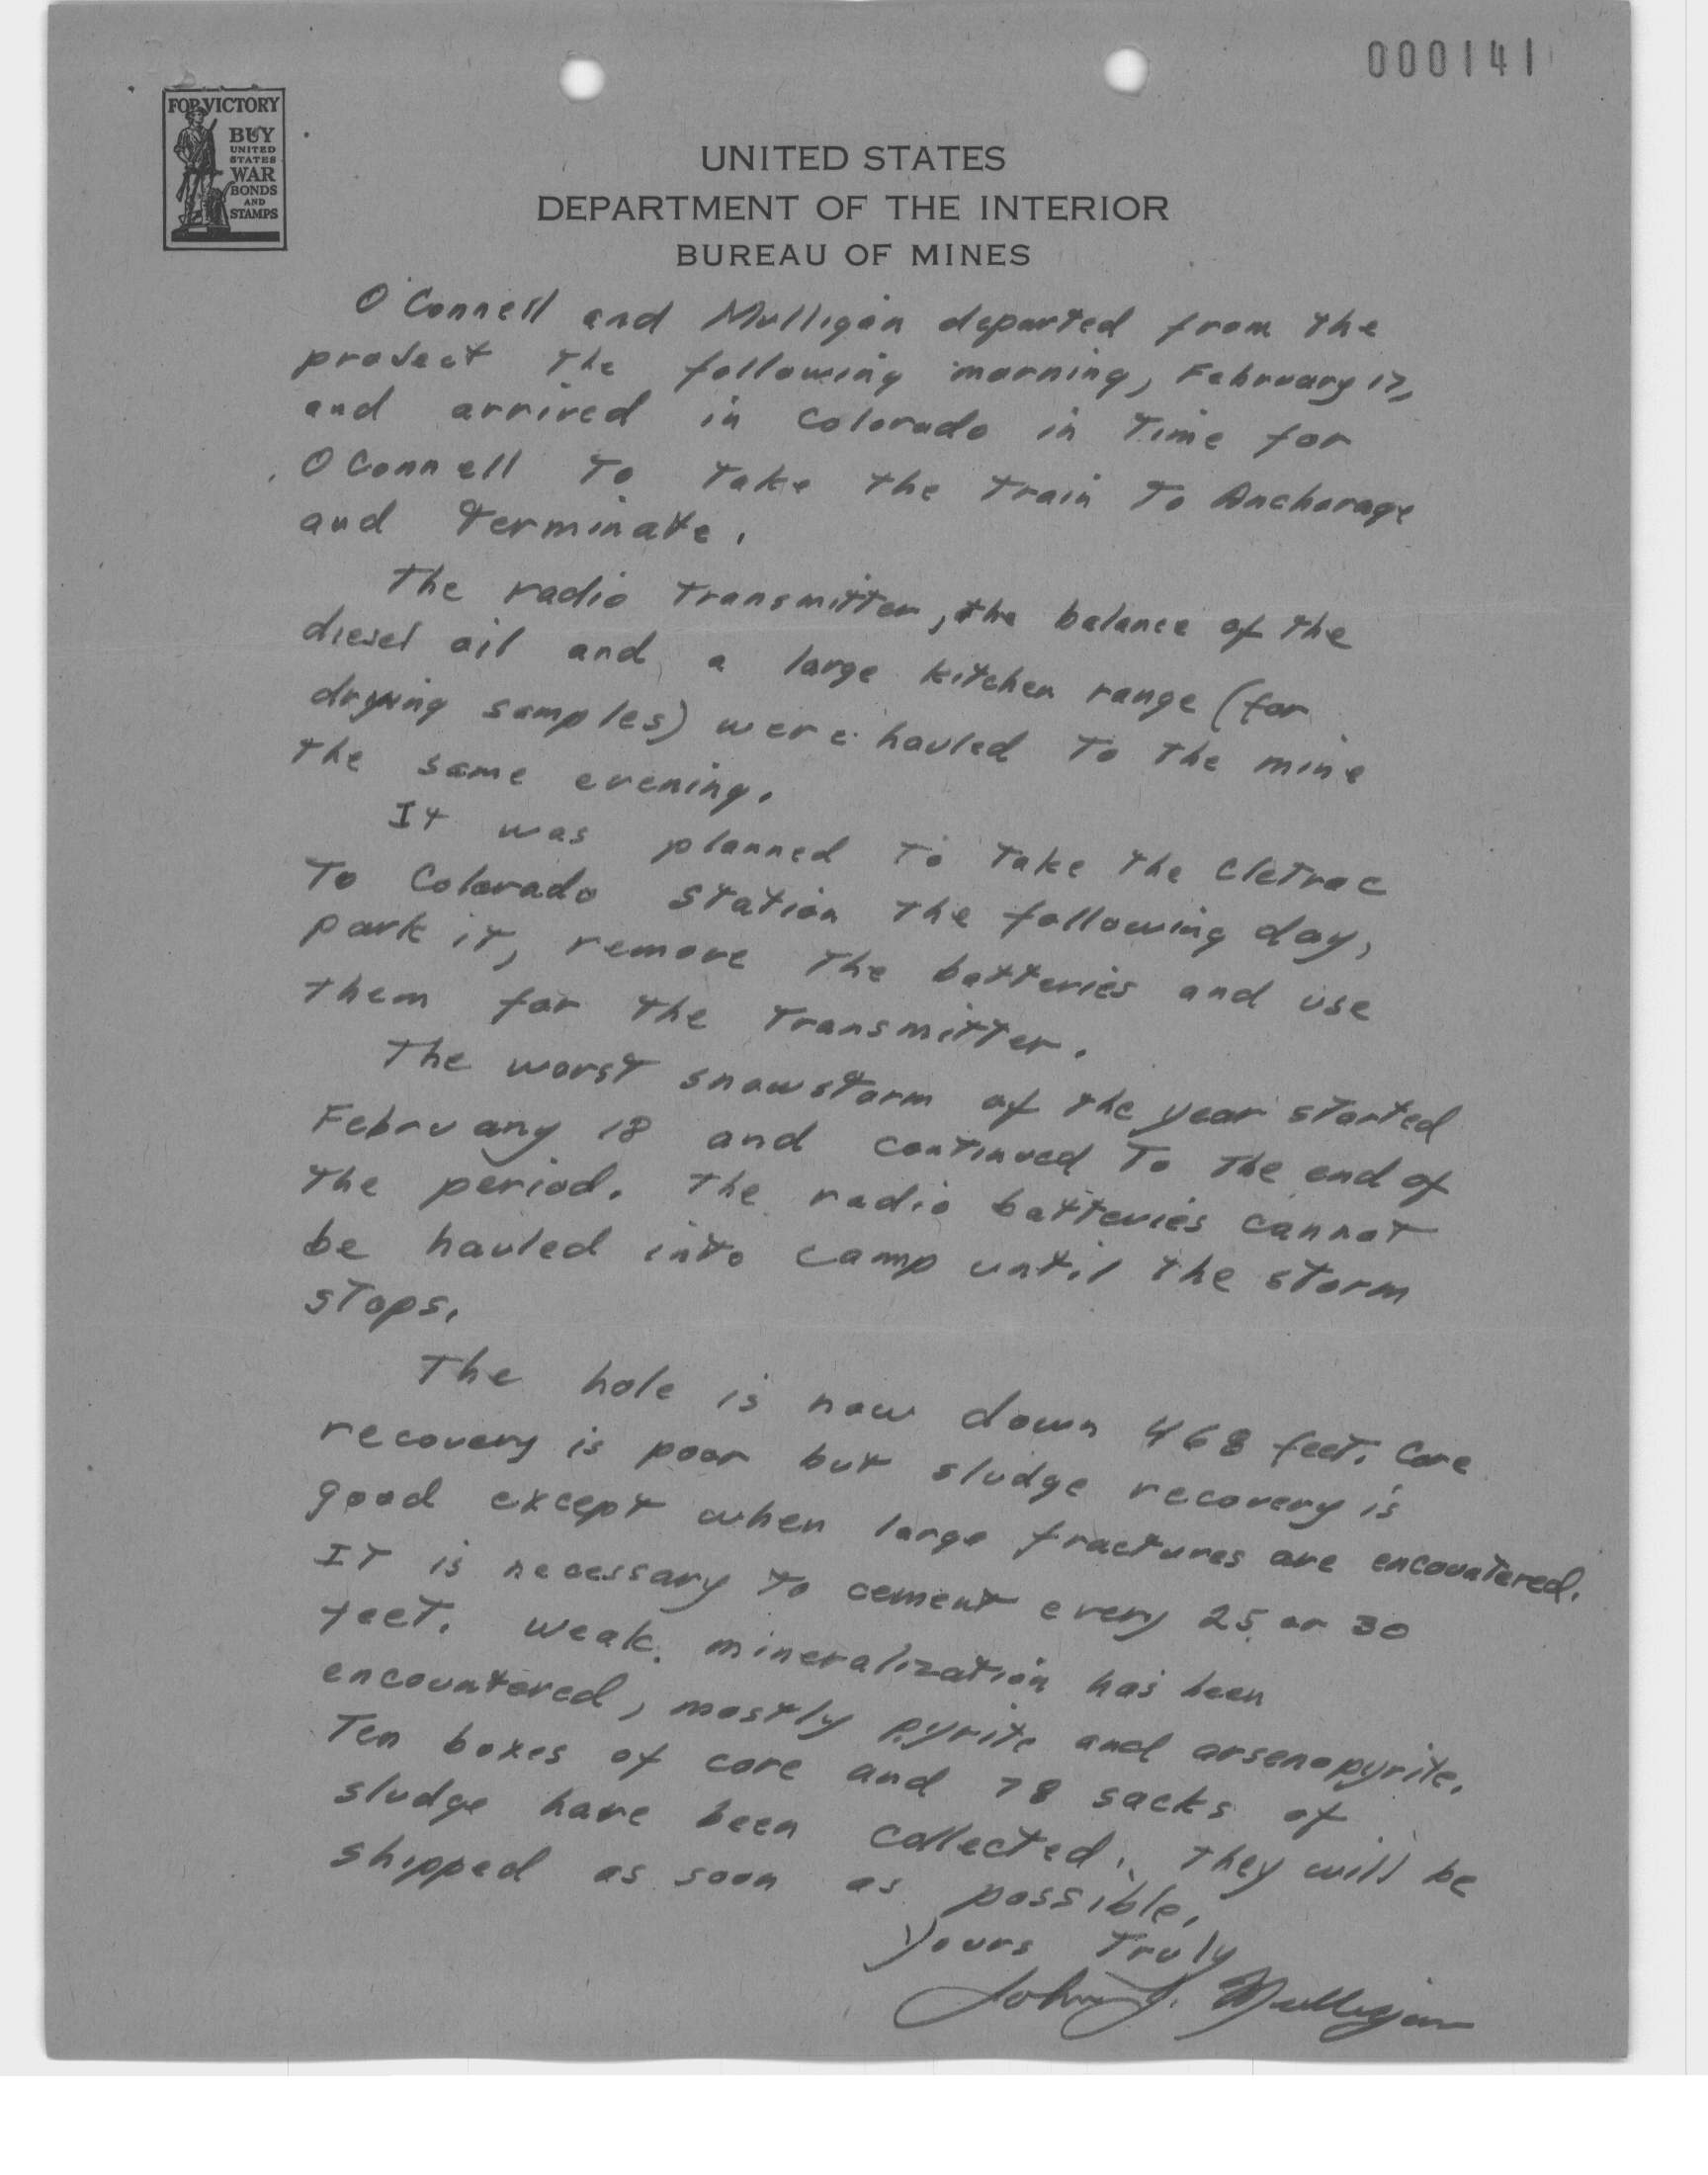 000141
FOR VICTORY
BUY
UNITED
STATES
WAR
BONDS
AND
STAMPS
UNITED STATES
DEPARTMENT OF THE INTERIOR
BUREAU OF MINES
O'Connell and Mulligan departed from the
project the following morning, February 17,
and arrived in Colorado in time for
O'Connell to take the train to Anchorage
and terminate.
The radio transmitter, the balance of the
diesel oil and a large kitchen range (for
drying samples) were hauled to the mine
the same evening.
It was planned to take the Cletrac
to Colorado station the following day,
park it, remove the batteries and use
them for the transmitter.
The worst snowstorm of the year started
February 18 and continued to the end of
the period. The radio batteries cannot
be hauled into camp until the storm
stops.
The hole is now down 468 feet. Core
recovery is poor but sludge recovery is
good except when large fractures are encountered.
It is necessary to cement every 25 or 30
feet. Weak mineralization has been
encountered, mostly pyrite and arsenopyrite.
Ten boxes of core and 78 sacks of
sludge have been collected. They will be
shipped as soon as possible.
Yours Truly
John J. Mulligan